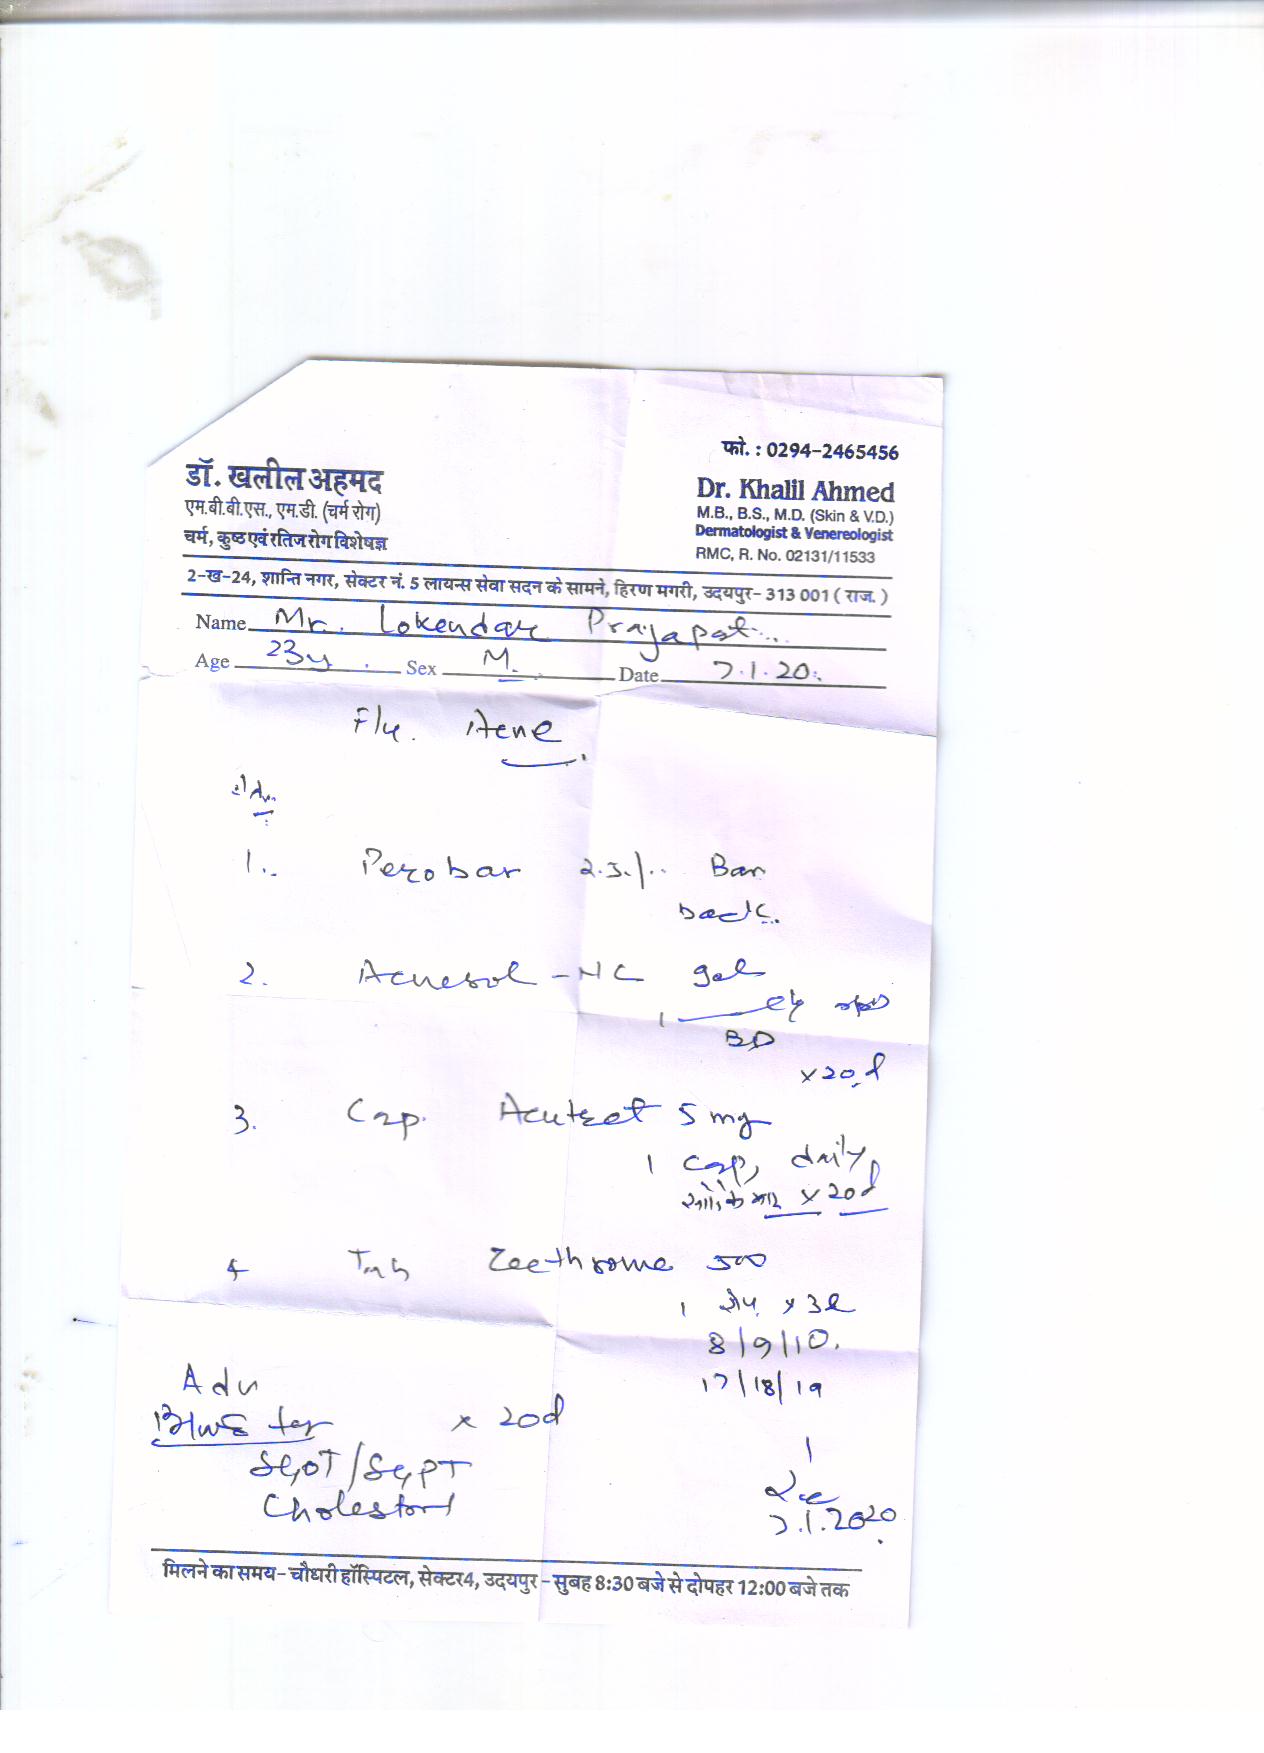 फो. : 0294-2465456
डॉ. खलील अहमद
एम.बी.बी.एस., एम.डी. (चर्म रोग)
चर्म, कुष्ठ एवं रतिज रोग विशेषज्ञ
Dr. Khalil Ahmed
M.B., B.S., M.D. (Skin & V.D.)
Dermatologist & Venereologist
RMC, R. No. 02131/11533
2-ख-24, शान्ति नगर, सेक्टर नं. 5 लायन्स सेवा सदन के सामने, हिरण मगरी, उदयपुर- 313 001 ( राज. )
Name Mr. Lokendar Prajapat
Age 23y Sex M. Date 7.1.20
Acne
1. Perobar 2.5% Bar
2. Acnesol-NC gel
BD
x 20 d
3. Cap. Acutret 5 mg
1 cap, daily
x 20 d
4 Tab Zeethrome 500
1 रोज x 3 d
8/9/10.
17/18/19
Adv
x 20d
SGOT/SGPT
Cholestorl
7.1.2020
मिलने का समय- चौधरी हॉस्पिटल, सेक्टर4, उदयपुर - सुबह 8:30 बजे से दोपहर 12:00 बजे तक